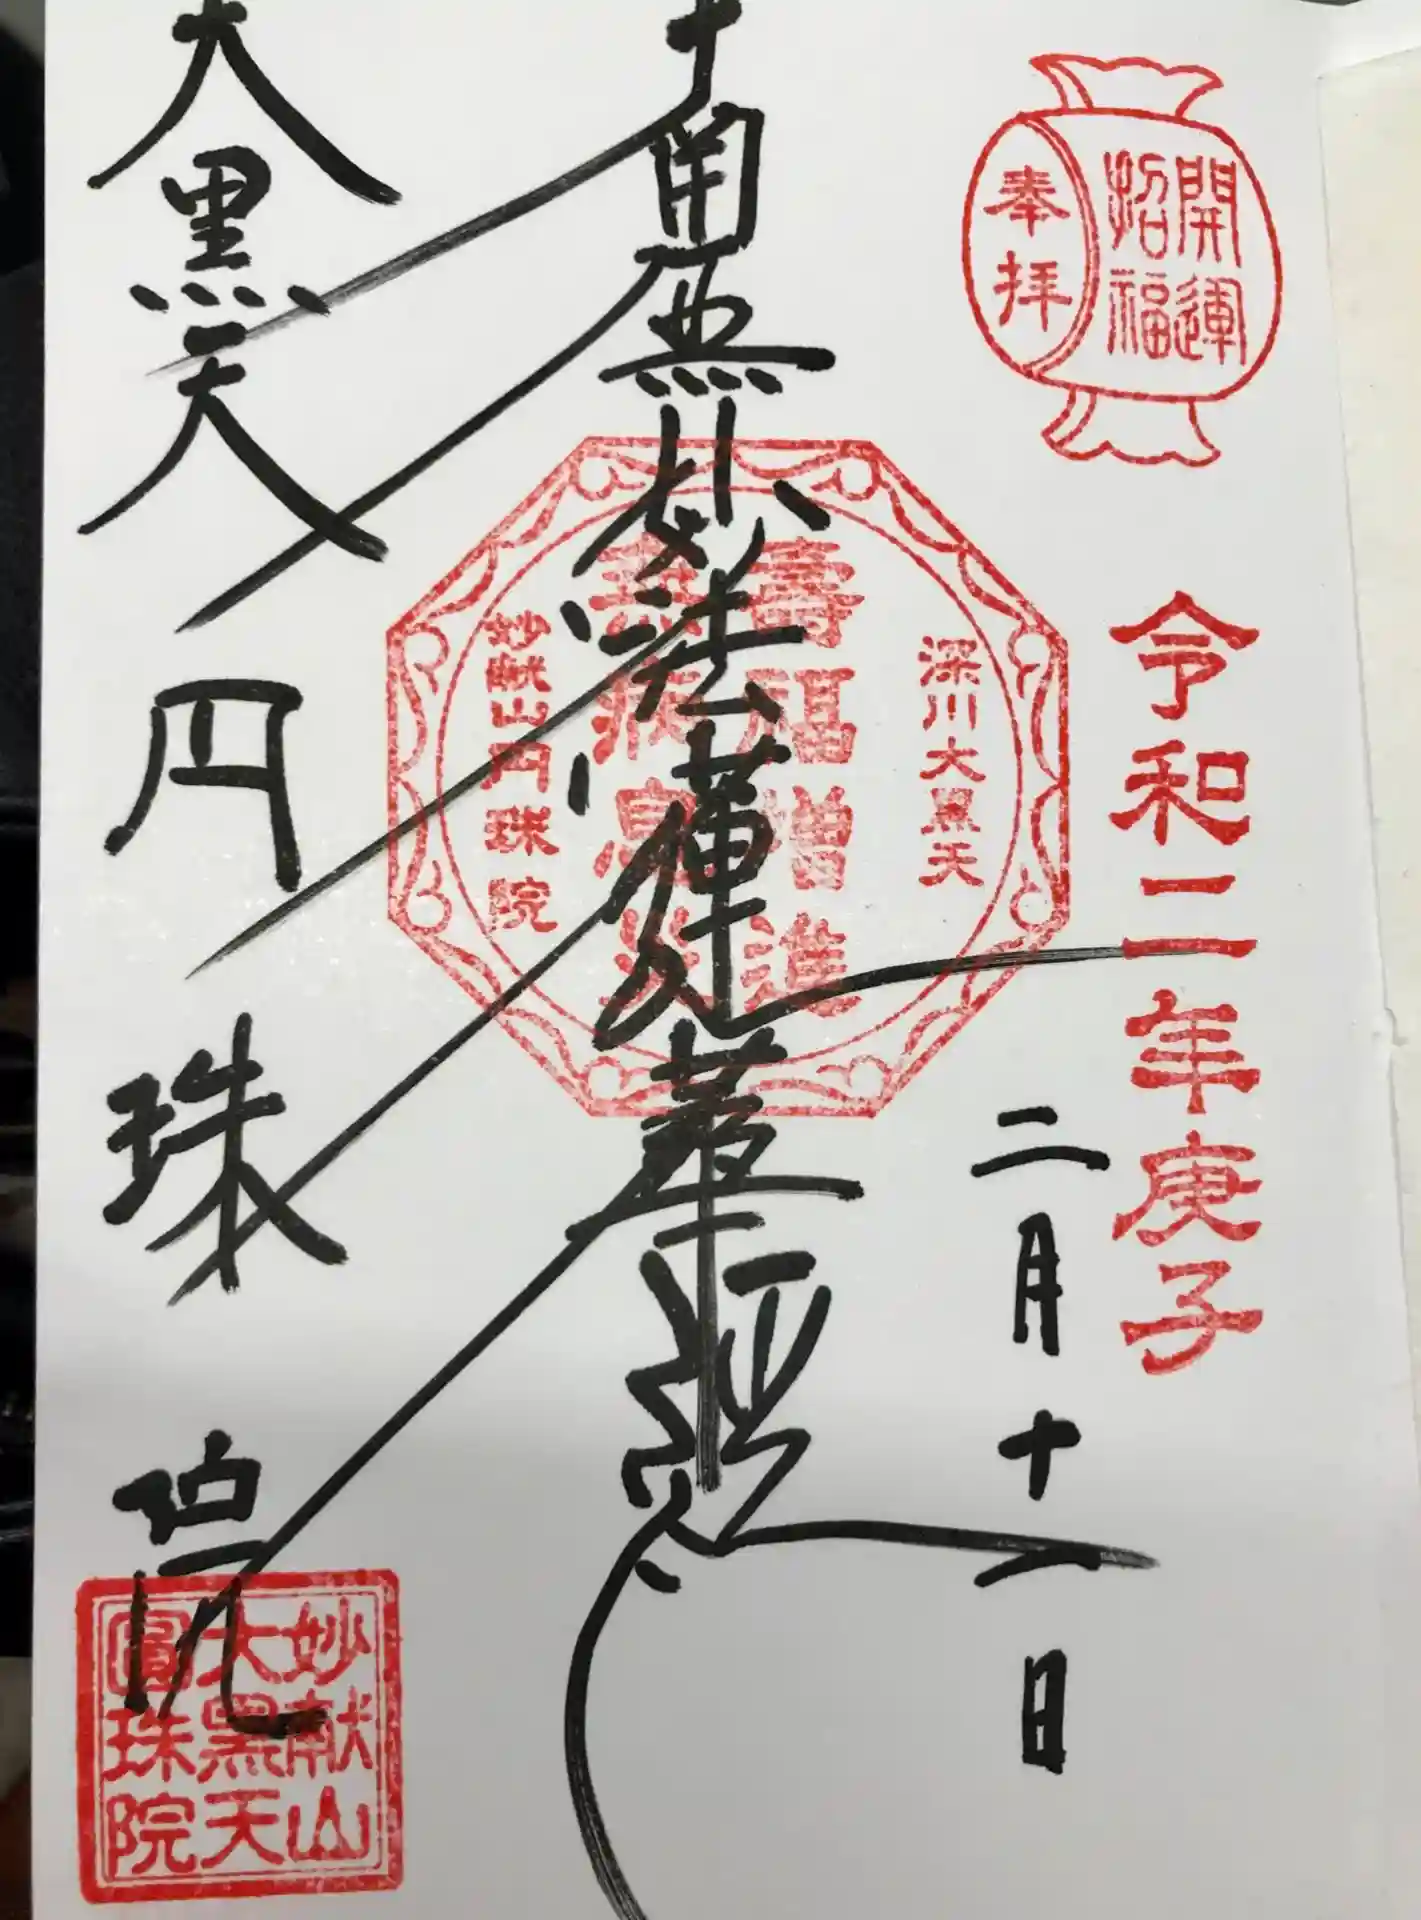 開運
招福
奉拝
令和二年庚子
二月十一日
深川大黒天
壽福増進
無病息災
妙献山円珠院
南無妙法蓮華経
大黒天
円珠院
妙献山
大黒天
圓珠院